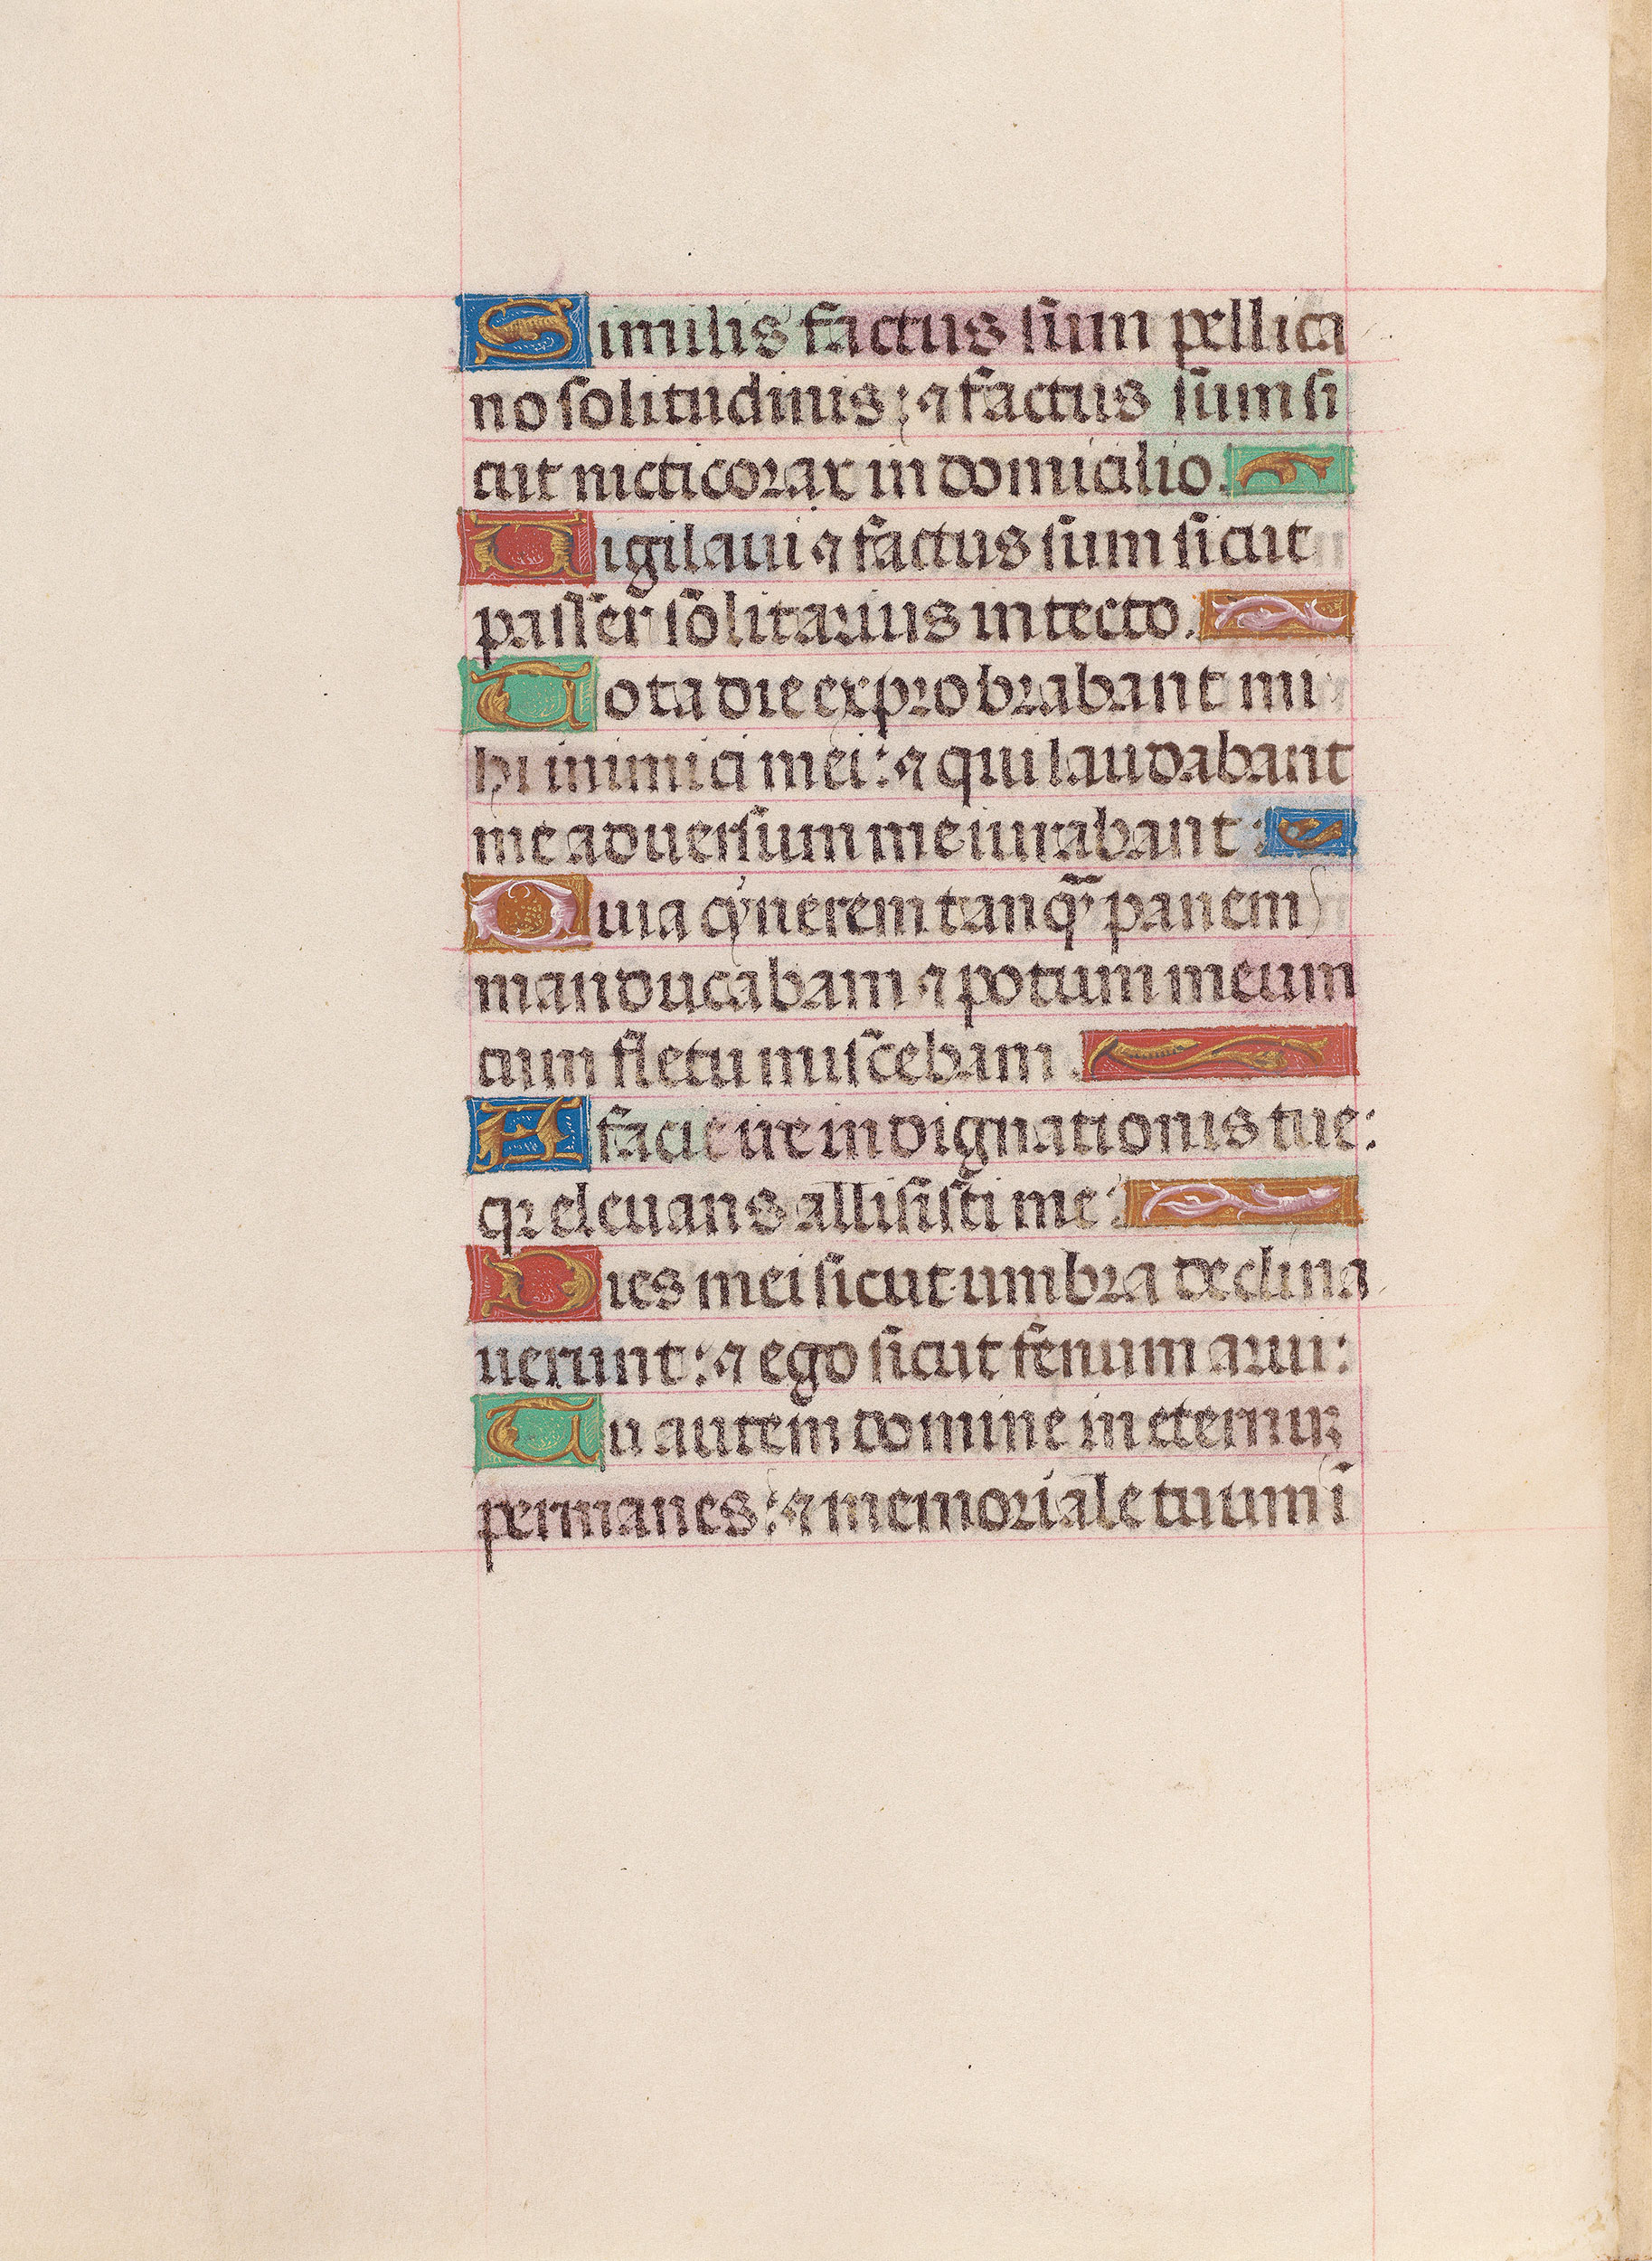 Similis factus sum pellica
no solitudinis: ⁊ factus sum si
cut nicticorax in domicilio.
Uigilaui ⁊ factus sum sicut
passer solitarius in tecto.
Tota die exprobrabant mi
hi inimici mei: ⁊ qui laudabant
me aduersum me iurabant:
Quia cynerem tanq̄ panem
manducabam ⁊ potum meum
cum fletu miscebam.
A facie ire indignationis tue:
qꝛ eleuans allisisti me:
Dies mei sicut umbra declina
uerunt: ⁊ ego sicut fenum arui:
Tu autem domine in eternuꝫ
permanes: ⁊ memoriale tuum ī